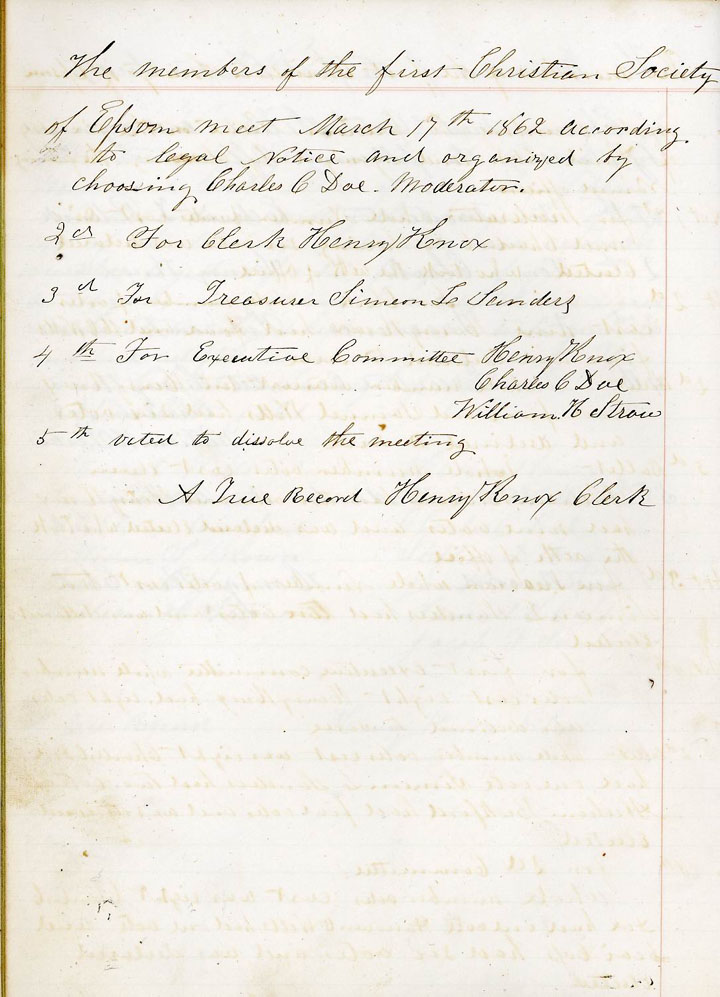 The members of the first Christian Society
of Epsom meet March 17th 1862 according
to legal Notice and organized by
choosing Charles C Doe. Moderator.
2d For Clerk Henry Knox
3d For Treasurer Simeon L Sanders
4th For Executive Committee Henry Knox
Charles C Doe
William H Straw
5th voted to dissolve the meeting
A True Record Henry Knox Clerk